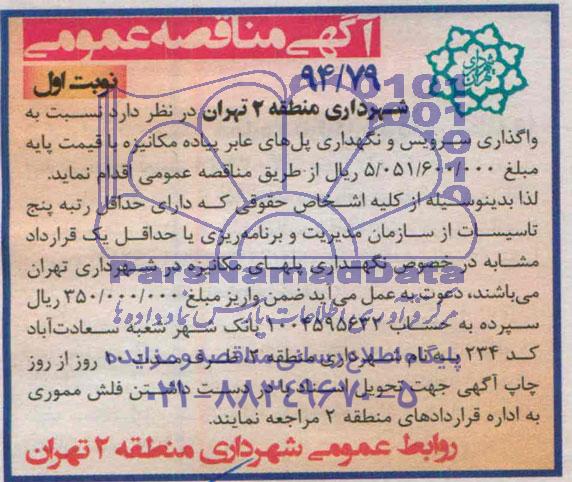 آگهی مناقصه عمومی
۹۴/۷۹
نوبت اول
شهرداری منطقه ۲ تهران در نظر دارد نسبت به
واگذاری سرویس و نگهداری پل‌های عابر پیاده مکانیزه با قیمت پایه
مبلغ ۵/۰۵۱/۶۰۰/۰۰۰ ریال از طریق مناقصه عمومی اقدام نماید.
لذا بدینوسیله از کلیه اشخاص حقوقی که دارای حداقل رتبه پنج
تاسیسات از سازمان مدیریت و برنامه‌ریزی یا حداقل یک قرارداد
مشابه در خصوص نگهداری پلهای مکانیزه در شهرداری تهران
می‌باشند، دعوت به عمل می‌آید ضمن واریز مبلغ ۳۵۰/۰۰۰/۰۰۰ ریال
سپرده به حساب ۱۰۰۴۵۹۵۶۳۲ بانک شهر شعبه سعادت‌آباد
کد ۲۳۴ به نام شهرداری منطقه ۲ ظرف مدت ۱۰ روز از روز
چاپ آگهی جهت تحویل اسناد با در دست داشتن فلش مموری
به اداره قراردادهای منطقه ۲ مراجعه نمایند.
روابط عمومی شهرداری منطقه ۲ تهران
ParsNamadData
مرکز فرآوری اطلاعات پارس نماد داده‌ها
پایگاه اطلاع رسانی مناقصه و مزایده
۰۲۱-۸۸۳۴۹۶۷۰-۵